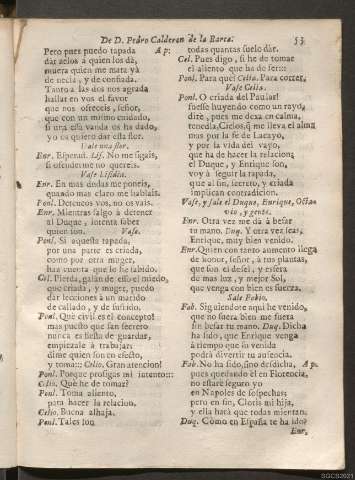 De D. Pedro Calderon de la Barca. 53
Pero pues puedo tapada A p.
dar zelos à quien los dà,
muera quien me mata yà
de necia, y de confiada.
Tanto à las dos nos agrada
hallar en vos el favor
que nos ofreceis, señor,
que con un mismo cuidado,
si una essa vanda os ha dado,
yo os quiero dar esta flor.
Dale una flor.
Enr. Esperad. Lis. No me sigais,
si ofenderme no quereis.
Vase Lisida.
Enr. En mas dudas me poneis,
quando mas claro me hablais.
Ponl. Deteneos vos, no os vais.
Enr. Mientras salgo à detener
al Duque, intenta saber
quien son. Vase.
Ponl. Si aquella tapada,
por una parte es criada,
como por otra muger,
haz cuenta que lo he sabido.
Cel. Pierda, galan de esso el miedo,
que criada, y muger, puedo
dar lecciones à un marido
de callado, y de sufrido.
Ponl. Què civil es el concepto!
mas puesto que san secreto
nunca es fiesta de guardar,
empiezale à trabajar:
dime quien son en efecto,
y toma::: Celia. Gran atencion!
Ponl. Porque prosigas mi intento:::
Celia. Què he de tomar?
Ponl. Toma aliento,
para hacer la relacion.
Celia. Buena alhaja.
Ponl. Tales son
todas quantas suelo dàr.
Cel. Pues digo, si he de tomar
el aliento que ha de ser:::
Ponl. Para què? Celia. Para correr.
Vase Celia.
Ponl. O criada del Paular!
fuesse huyendo como un rayo,
dirè, pues me dexa en calma,
tenedla, Cielos, q̃ me lleva el alma
mas por la fe de Lacayo,
y por la vida del vayo,
que ha de hacer la relacion;
el Duque, y Enrique son,
voy à seguir la tapada,
que al fin, secreto, y criada
implican contradicion.
Vase, y sale el Duque, Enrique, Octa-
vio, y gente.
Enr. Otra vez me dà à besar
tu mano. Duq. Y otra vez seas,
Enrique, muy bien venido.
Enr. Quien con tanto aumento llega
de honor, señor, à tus plantas,
que son el dosel, y esfera
de mas luz, y mejor Sol,
que venga con bien es fuerza.
Sale Fabio.
Fab. Siguiendote aqui he venido,
que no fuera bien me fuera
sin besar tu mano. Duq. Dicha
ha sido, que Enrique venga
à tiempo que su venida
podrà divertir tu ausencia.
Fab. No ha sido, sino desdicha, A p.
pues quedando èl en Florencia,
no estarè seguro yo
en Napoles de sospechas;
pero en fin, Cloris mi hija,
y ella harà que todas mientan.
Duq. Como en España te ha ido?
Enr.
SGCS2021